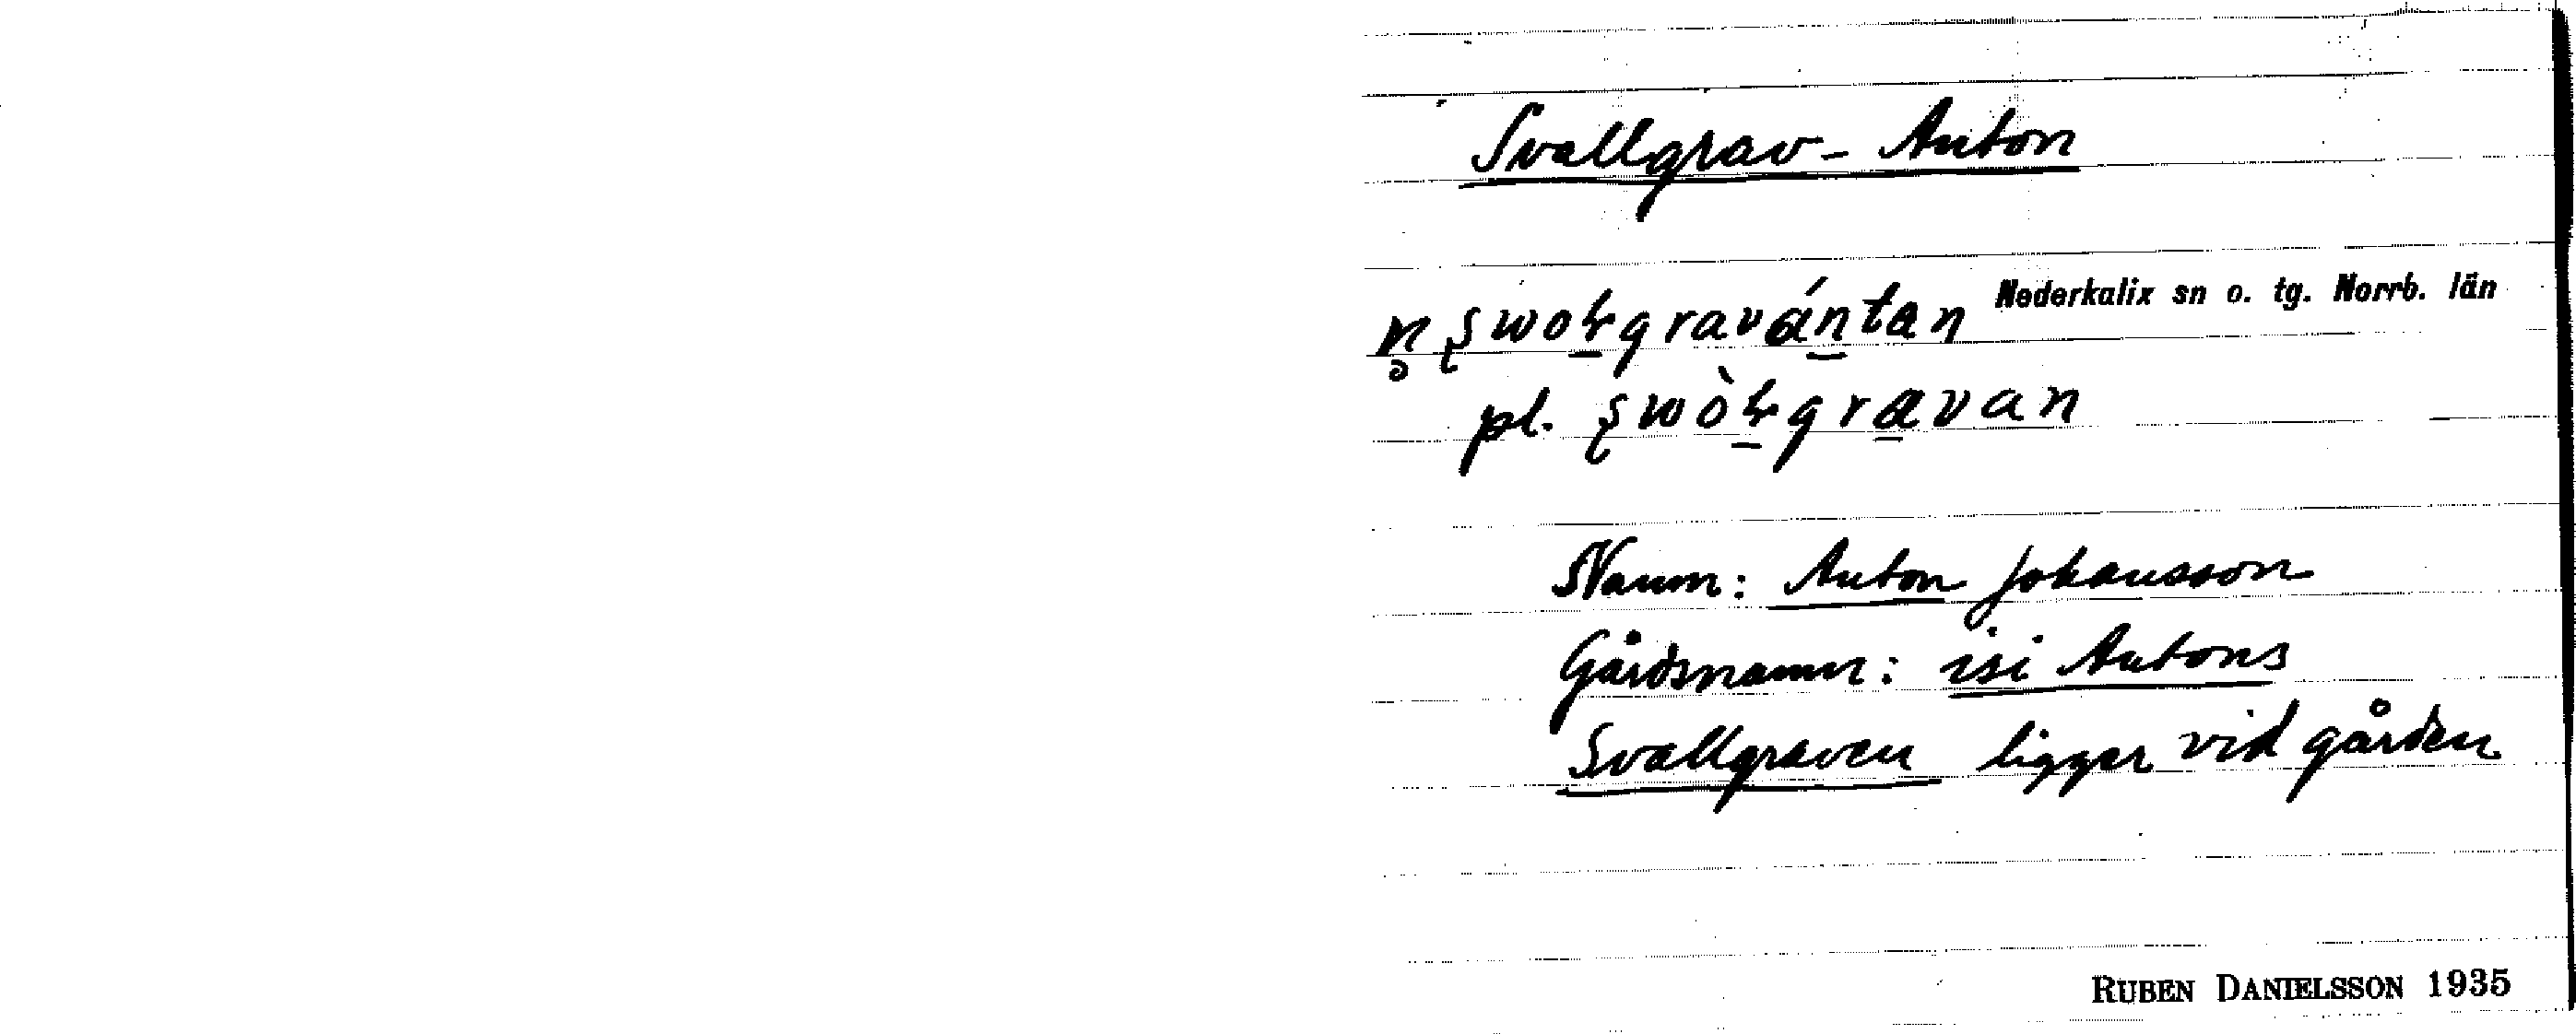 Svallgrav-Anton
Nederkalix sn o. tg. Norrb. län
n̥ ʂwoɽgraván̲tan
pl. ʂwòɽgra̲van
Namn: Anton Johansson
Gårdsnamn: isi Antons
Svallgraven ligger vid gården
RUBEN DANIELSSON 1935